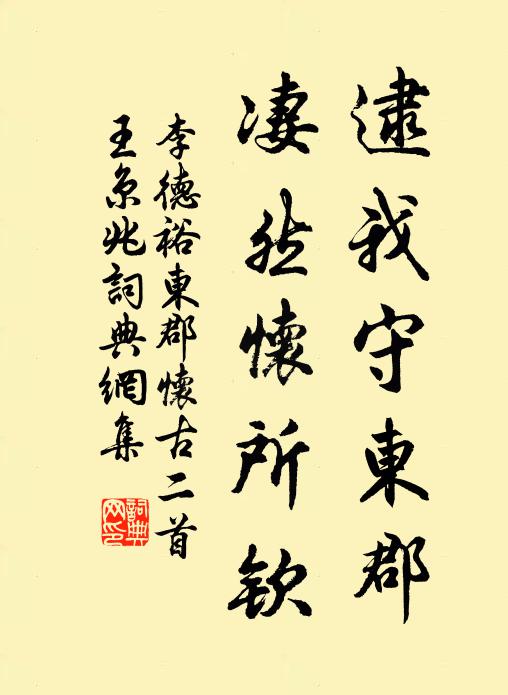 逮我守東郡
凄然懷所欽
李德裕東郡懷古二首
王京兆詞典網集
詞典网印